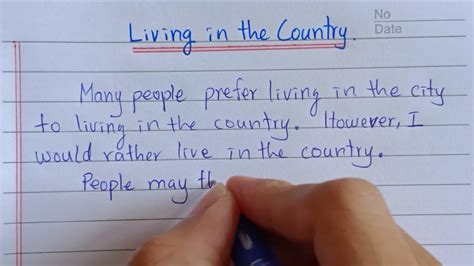 No
Date
Living in the Country.
Many people prefer living in the city
to living in the country. However, I
would rather live in the country.
People may th